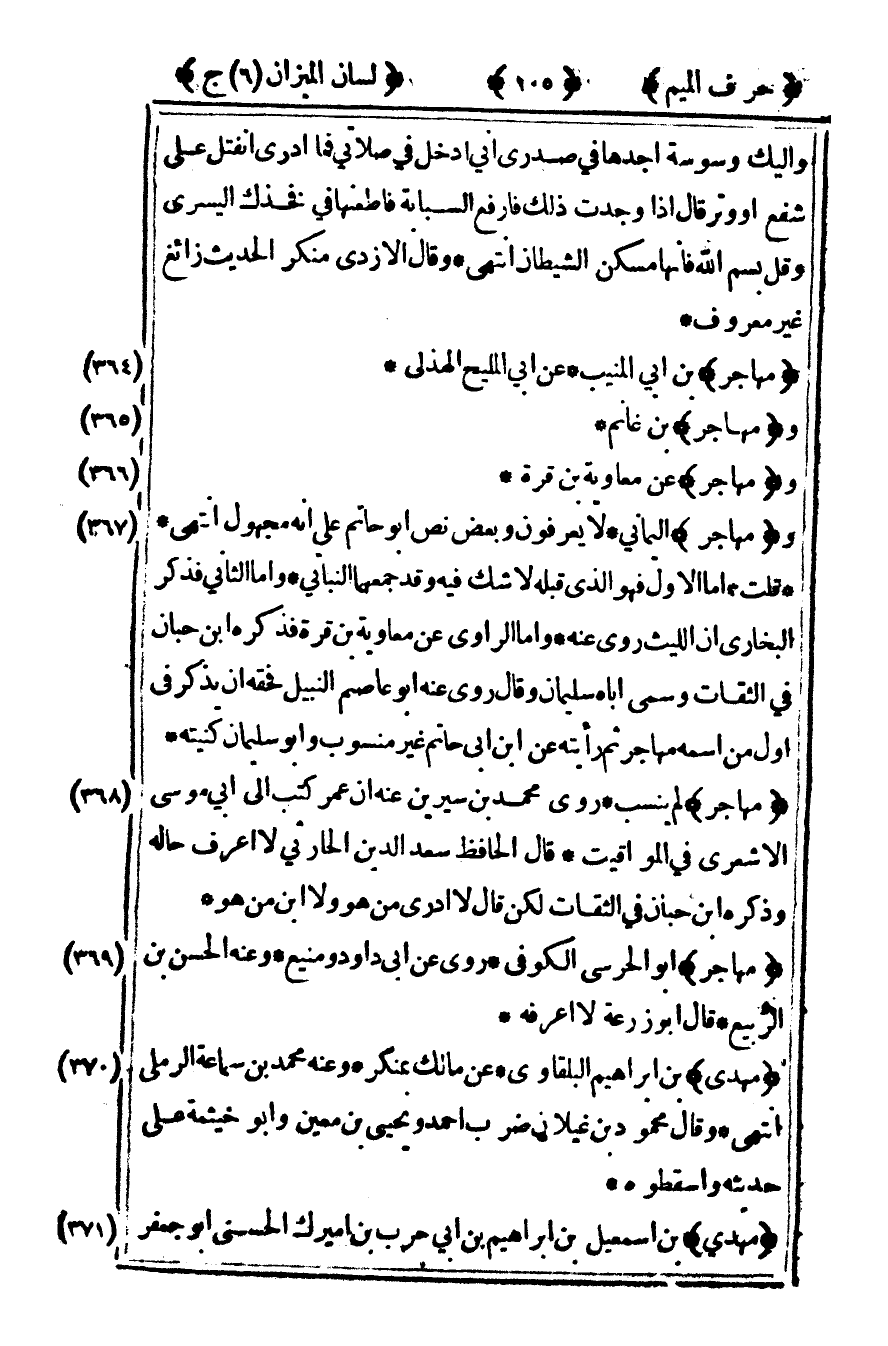 ﴿ حرف الميم ﴾ ﴿ ١٠٥ ﴾ ﴿ لسان الميزان (٦) ج ﴾
واليك وسوسة اجدها في صدرى انى ادخل في صلاتي فما ادرى انفتل على
شفع او وتر قال اذا وجدت ذلك فارفع السبابة فاطعنها في فخذك اليسرى
وقل بسم الله فانها مسكن الشيطان انتهى * وقال الازدى منكر الحديث زائغ
غير معروف *
﴿ مهاجر ﴾ بن ابي المنيب * عن ابي المليح الهذلى * (٣٦٤)
و﴿ مهاجر ﴾ بن غانم * (٣٦٥)
و﴿ مهاجر ﴾ عن معاوية بن قرة * (٣٦٦)
و﴿ مهاجر ﴾ اليماني * لا يعرفون وبعض نص ابو حاتم على انه مجهول انتهى * (٣٦٧)
* قلت * اما الاول فهو الذى قبله لاشك فيه وقد جمعهما النباتي * واما الثاني فذكر
البخارى ان الليث روى عنه * واما الراوى عن معاوية بن قرة فذكره ابن حبان
في الثقات وسمى اباه سليمان وقال روى عنه ابو عاصم النبيل فحقه ان يذكر فى
اول من اسمه مهاجر ثم رأيته عن ابن ابى حاتم غير منسوب وابو سليمان كنيته *
﴿ مهاجر ﴾ لم ينسب * روى محمد بن سيرين عنه ان عمر كتب الى ابي موسى (٣٦٨)
الاشعرى في المواقيت * قال الحافظ سعد الدين الحارثي لا اعرف حاله
وذكره ابن حبان في الثقات لكن قال لا ادرى من هو ولا ابن من هو *
﴿ مهاجر ﴾ ابو الحرسى الكوفى * روى عن ابى داود ومنيع * وعنه الحسن بن (٣٦٩)
الربيع * قال ابو زرعة لا اعرفه *
﴿ مهدى ﴾ بن ابراهيم البلقاوى * عن مالك بمنكر * وعنه محمد بن سماعة الرملى (٣٧٠)
انتهى * وقال محمود بن غيلان ضرب احمد ويحيى بن معين وابو خيثمة على
حديثه واسقطوه *
﴿ مهدي ﴾ بن اسمعيل بن ابراهيم بن ابي حرب بن اميرك الحسنى ابو جعفر (٣٧١)